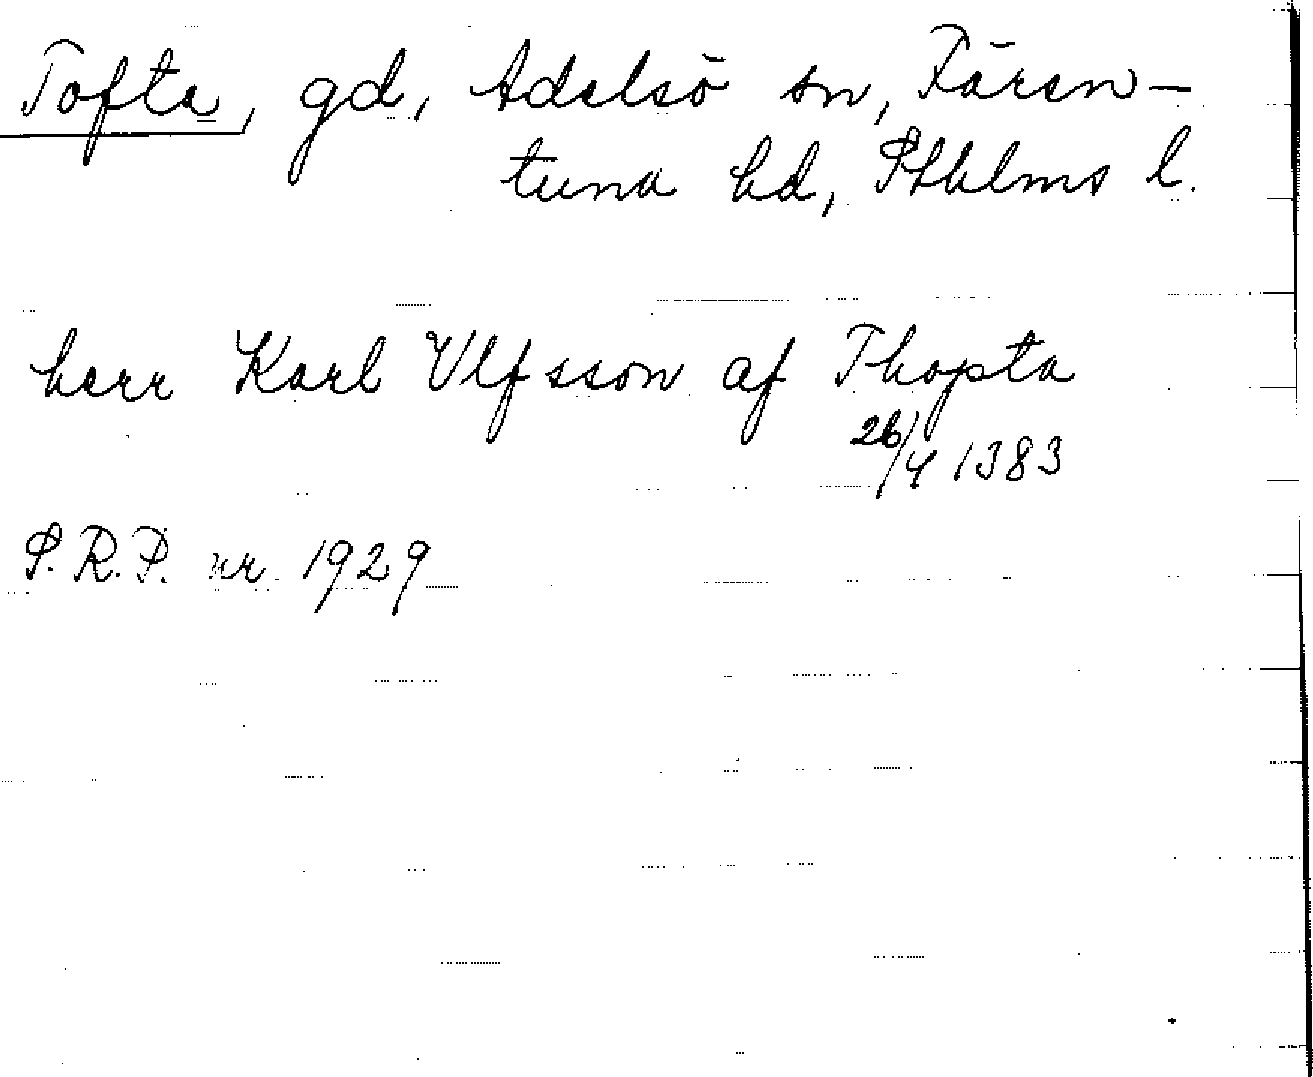 Tofta, gd, Adelsö sn, Fären-
tuna hd, Sthlms l.
herr Karl Ulfsson af Thopta
26/4 1383
S.R.P. nr 1929